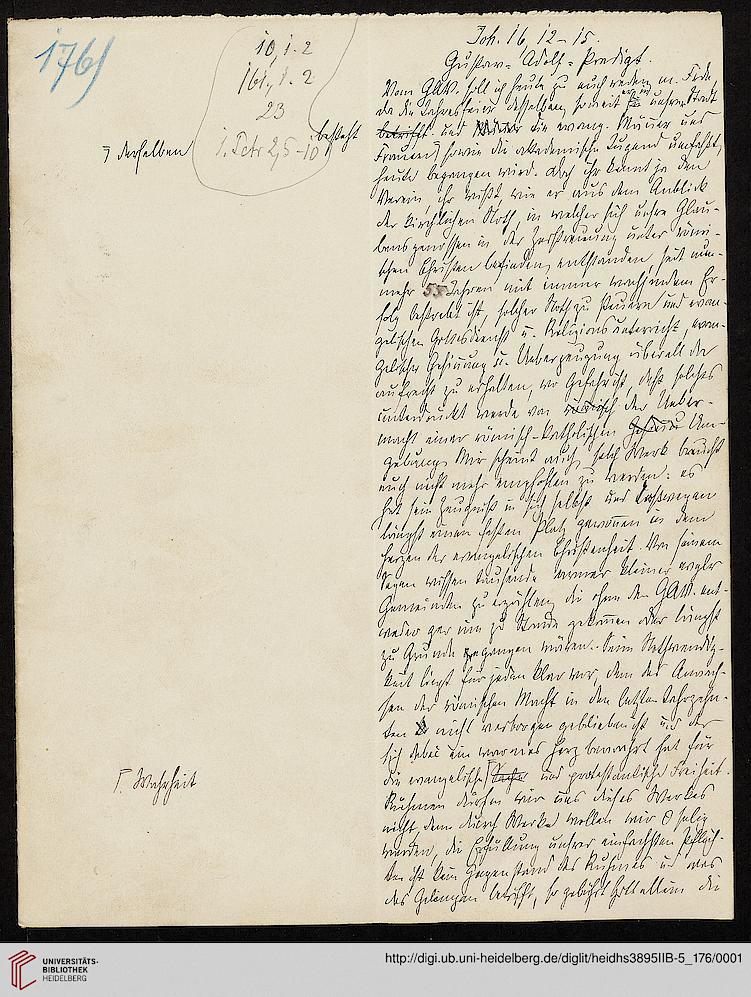 176)
10, 1-2
161, 1-2
23
1. Petr 2,5-10
besteht
derselben
Γ. Wahrheit
Joh. 16, 12-15.
Gustav-Adolf-Predigt.
Vom GAV. soll ich heute zu euch reden, m. Fde
da die Jahresfeier desselben, soweit er in unsrer Stadt
besteht und die evang. Männer und
Frauen, sowie die akademische Jugend umfaßt,
heute begangen wird. Doch ihr kennt ja den
Verein, ihr wißt, wie er aus dem Anblick
der kirchlichen Noth, in welcher sich unsre Glau-
bensgenossen in der Zerstreuung unter römi-
schen Christen befinden, entstanden, seit nun-
mehr 55 Jahren mit immer wachsendem Er-
folg bestrebt ist, solcher Noth zu steuern und evan-
gelischen Gottesdienst u. Religionsunterricht, evan-
gelische Gesinnung u. Ueberzeugung überall da
aufrecht zu erhalten, wo Gefahr ist, daß solches
unterdrückt werde von der Ueber-
macht einer römisch-katholischen Um-
gebung. Mir scheint auch, solch Werk braucht
euch nicht mehr empfohlen zu werden: es
hat sein Zeugniß in sich selbst und deßwegen
längst einen festen Platz gewonnen in dem
Herzen der evangelischen Christenheit. Von seinem
Segen wissen tausende armer kleiner
Gemeinden zu erzählen, die ohne den GAV. ent-
weder gar nie zu Stande gekommen oder längst
zu Grunde gegangen wären. Seine Nothwendig-
keit liegt für jeden klar vor, dem das Anwach-
sen der römischen Macht in den letzten Jahrzehn-
ten nicht verborgen geblieben ist und der
sich dabei ein warmes Herz bewahrt hat für
die evangelische Sache und protestantische Freiheit.
Rühmen dürfen wir uns dieses Werkes
nicht, denn durch Werke wollen wir selig
werden, die Erfüllung unsrer einfachsten Pflich-
ten ist kein Gegenstand des Ruhmes und was
das Gelingen betrifft, so gebührt Gott allein die
UNIVERSITÄTS-
BIBLIOTHEK
HEIDELBERG
http://digi.ub.uni-heidelberg.de/diglit/heidhs3895IIB-5_176/0001